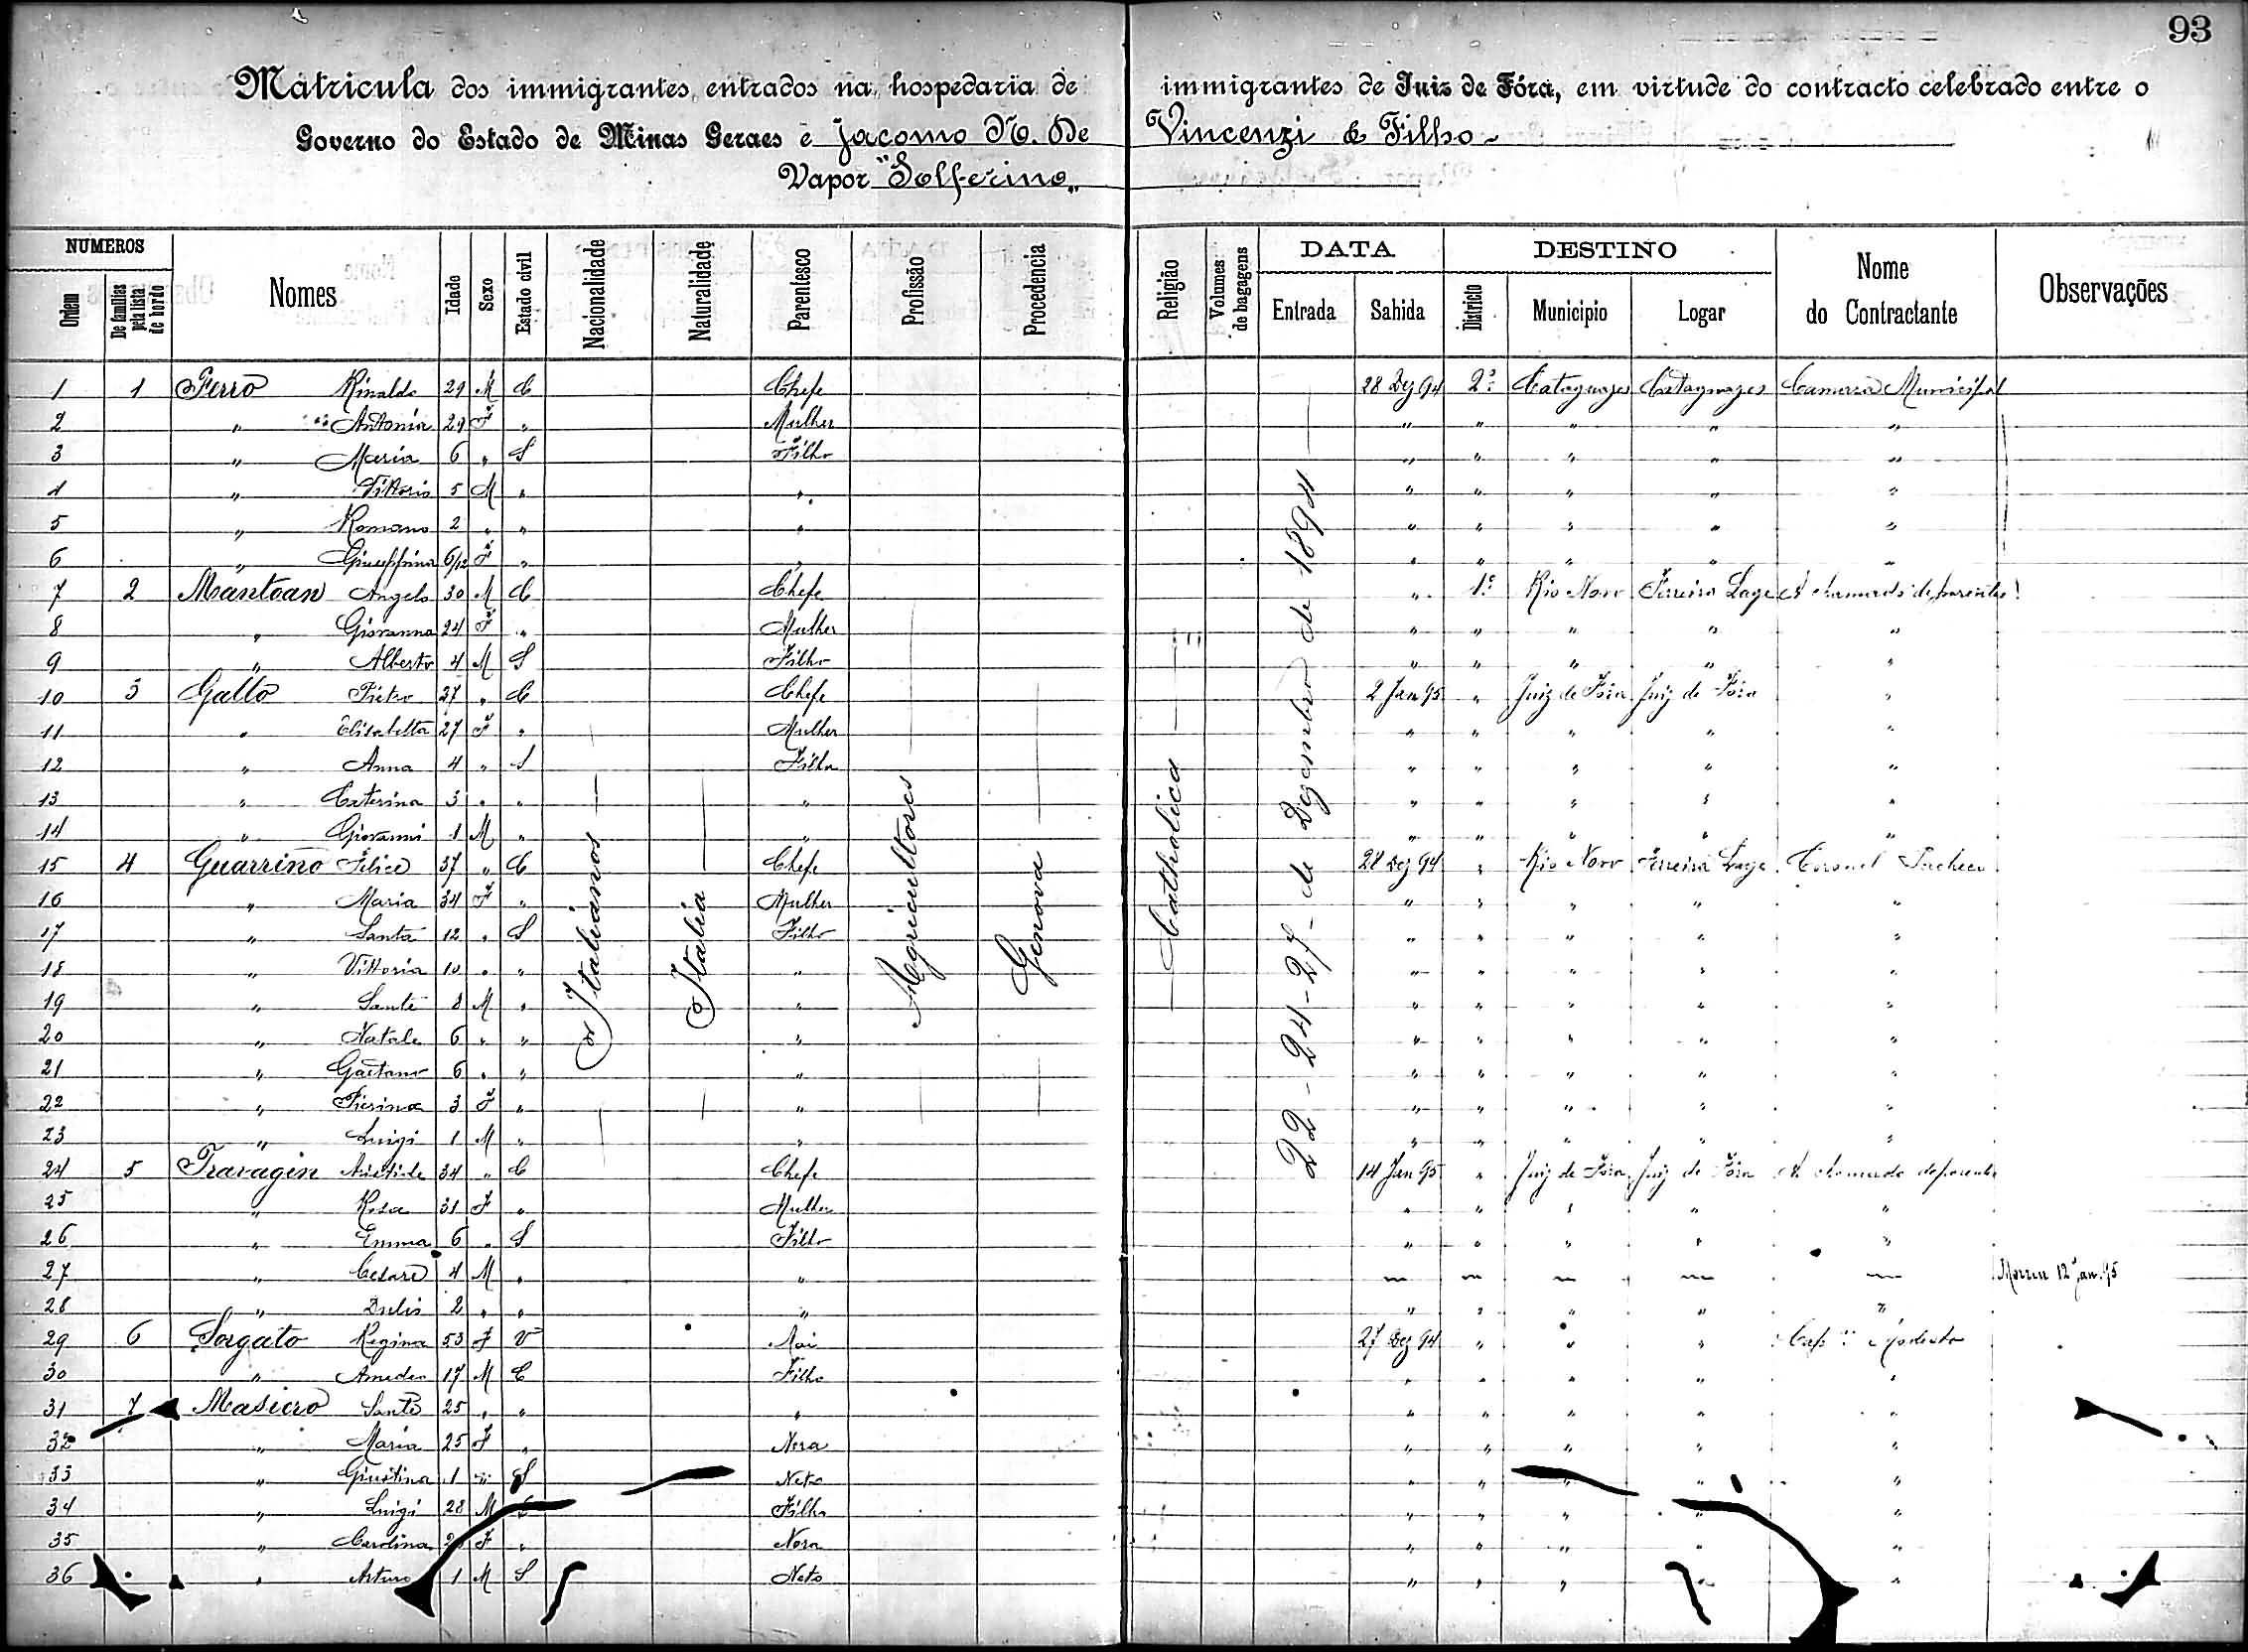 93
Matricula dos immigrantes entrados na hospedaria de immigrantes de Juiz de Fóra, em virtude do contracto celebrado entre o
Governo do Estado de Minas Geraes e Jacomo N. De Vincenzi & Filho
Vapor "Solferino"
NUMEROS Nomes Idade Sexo Estado civil Nacionalidade Naturalidade Parentesco Profissão Procedencia Religião Volumes de bagagens DATA DESTINO Nome do Contractante Observações
Ordem De familias pela lista de bordo Entrada Sahida Districto Municipio Logar
Italianos Italia Agricultores Genova Catholica 22-24-27- de Dezembro de 1894
1 1 Ferro Rinaldo 29 M C Chefe 28 Dez 94 2º Cataguazes Cataguazes Camara Municipal
2 " Antonia 29 F " Mulher " " " " "
3 " Maria 6 " S Filho " " " " "
4 " Vittorio 5 M " " " " " " "
5 " Romano 2 " " " " " " " "
6 " Giuseppina 6/12 F " " " " " " "
7 2 Mantoan Angelo 30 M C Chefe " 1º Rio Novo Ferreira Lage A chamado de parentes
8 " Giovanna 24 F " Mulher " " " " "
9 " Alberto 4 M S Filho " " " " "
10 3 Gallo Pietro 27 " C Chefe 2 Jan 95 " Juiz de Fóra Juiz de Fóra "
11 " Elisabetta 27 F " Mulher " " " " "
12 " Anna 4 " S Filha " " " " "
13 " Caterina 3 " " " " " " " "
14 " Giovanni 1 M " " " " " " "
15 4 Guarrino Felice 37 " C Chefe 28 Dez 94 " Rio Novo Ferreira Lage Coronel Pacheco
16 " Maria 34 F " Mulher " " " " "
17 " Santa 12 " S Filho " " " " "
18 " Vittoria 10 " " " " " " " "
19 " Sante 8 M " " " " " " "
20 " Natale 6 " " " " " " " "
21 " Gaetano 6 " " " " " " " "
22 " Pierina 3 F " " " " " " "
23 " Luigi 1 M " " " " " " "
24 5 Travagin Aristide 34 " C Chefe 14 Jan 95 " Juiz de Fóra Juiz de Fóra A chamado de parentes
25 " Rosa 31 F " Mulher " " " " "
26 " Emma 6 " S Filho " " " " "
27 " Cesare 4 M " " — — — — — Morreu 12 Jan. 95
28 " 2 " " " " " " " "
29 6 Sorgato Regina 53 F Vª Mai 27 Dez 94 " " " Capm Modesto
30 " Amedeo 17 M C Filho " " " " "
31 7 Masiero Sante 25 " " " " " " " "
32 " Maria 25 F " Nora " " " " "
33 " Giustina 1 " S Neto " " " " "
34 " Luigi 28 M C Filho " " " " "
35 " Carolina F " Nora " " " " "
36 " Arturo 1 M S Neto " " " " "